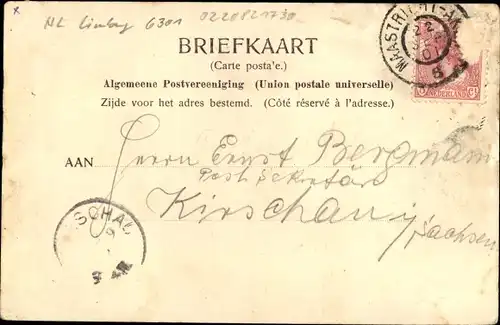 NL Limburg 6301 0220821730
MAASTRICHT-
22
01
8
BRIEFKAART
(Carte posta'e.)
Algemeene Postvereeniging (Union postale universelle)
Zijde voor het adres bestemd. (Côté réservé à l'adresse.)
NEDERLAND
AAN Herrn Ernst Bergmann
Post Sekretär
Kirschau i/
Sachsen
SCHAU